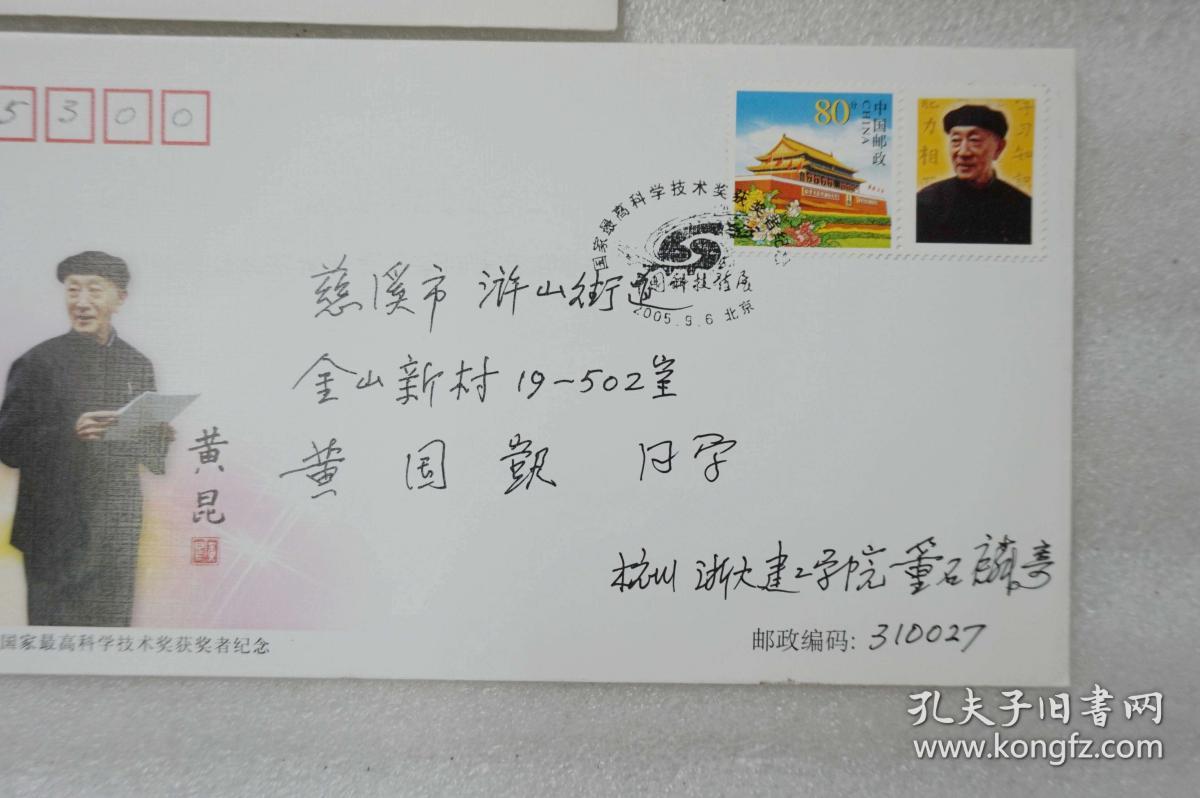 5300
80分
中国邮政
CHINA
国家最高科学技术奖获奖者纪念
中国科技符展
2005.9.6 北京
慈溪市 浒山街道
金山新村 19-502室
黄国觐 同学
黄昆
杭州 浙大建工学院 董石麟寄
国家最高科学技术奖获奖者纪念
邮政编码: 310027
孔夫子旧书网
www.kongfz.com